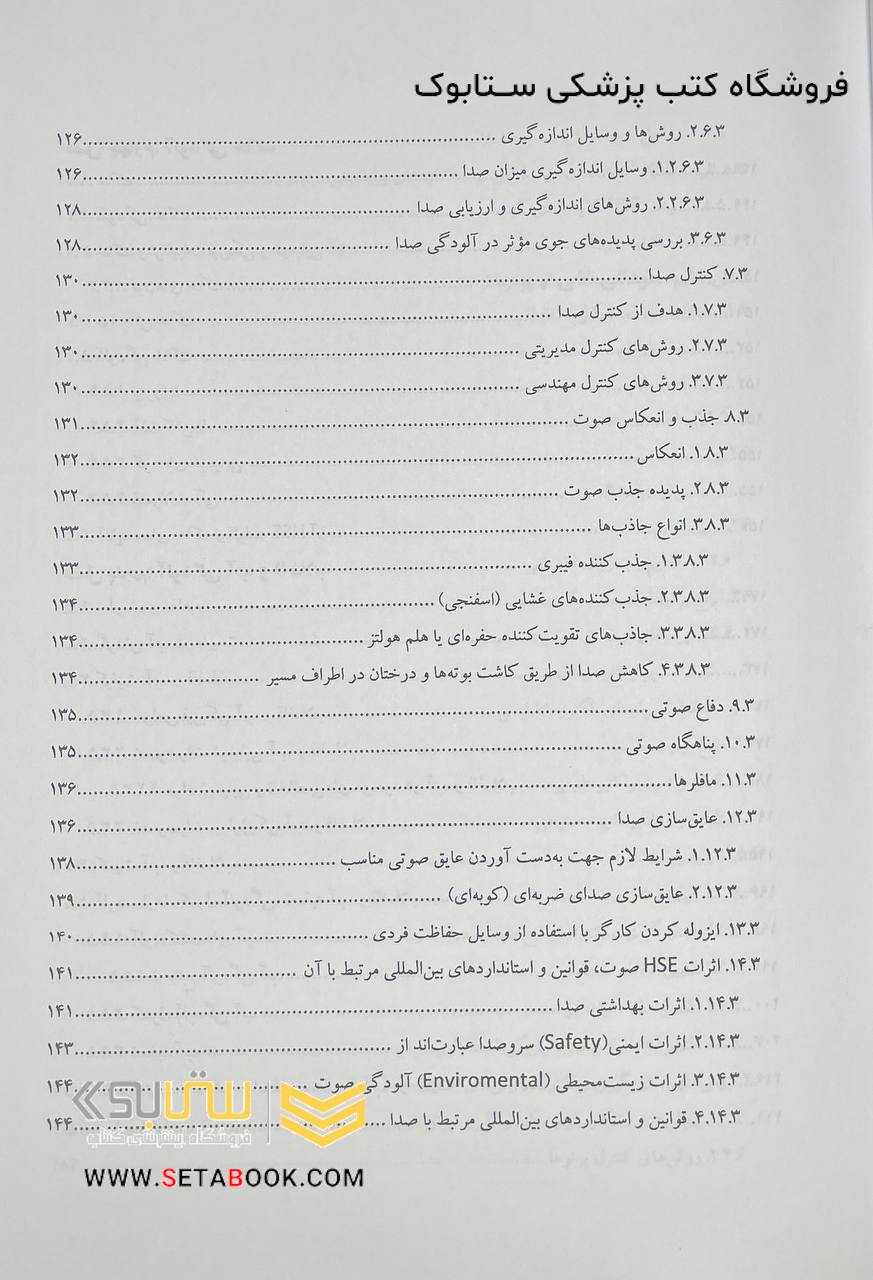 فروشگاه کتب پزشکی ستابوک
۲.۶.۳. روش‌ها و وسایل اندازه‌گیری ........ ۱۲۶
۱.۲.۶.۳. وسایل اندازه‌گیری میزان صدا ........ ۱۲۶
۲.۲.۶.۳. روش‌های اندازه‌گیری و ارزیابی صدا ........ ۱۲۸
۳.۶.۳. بررسی پدیده‌های جوی مؤثر در آلودگی صدا ........ ۱۲۸
۷.۳. کنترل صدا ........ ۱۳۰
۱.۷.۳. هدف از کنترل صدا ........ ۱۳۰
۲.۷.۳. روش‌های کنترل مدیریتی ........ ۱۳۰
۳.۷.۳. روش‌های کنترل مهندسی ........ ۱۳۰
۸.۳. جذب و انعکاس صوت ........ ۱۳۱
۱.۸.۳. انعکاس ........ ۱۳۲
۲.۸.۳. پدیده جذب صوت ........ ۱۳۲
۳.۸.۳. انواع جاذب‌ها ........ ۱۳۳
۱.۳.۸.۳. جذب‌کننده فیبری ........ ۱۳۳
۲.۳.۸.۳. جذب‌کننده‌های غشایی (اسفنجی) ........ ۱۳۴
۳.۳.۸.۳. جاذب‌های تقویت‌کننده حفره‌ای یا هلم هولتز ........ ۱۳۴
۴.۳.۸.۳. کاهش صدا از طریق کاشت بوته‌ها و درختان در اطراف مسیر ........ ۱۳۴
۹.۳. دفاع صوتی ........ ۱۳۵
۱۰.۳. پناهگاه صوتی ........ ۱۳۵
۱۱.۳. مافلرها ........ ۱۳۶
۱۲.۳. عایق‌سازی صدا ........ ۱۳۶
۱.۱۲.۳. شرایط لازم جهت به‌دست آوردن عایق صوتی مناسب ........ ۱۳۸
۲.۱۲.۳. عایق‌سازی صدای ضربه‌ای (کوبه‌ای) ........ ۱۳۹
۱۳.۳. ایزوله کردن کارگر با استفاده از وسایل حفاظت فردی ........ ۱۴۰
۱۴.۳. اثرات HSE صوت، قوانین و استانداردهای بین‌المللی مرتبط با آن ........ ۱۴۱
۱.۱۴.۳. اثرات بهداشتی صدا ........ ۱۴۱
۲.۱۴.۳. اثرات ایمنی(Safety) سروصدا عبارت‌اند از ........ ۱۴۳
۳.۱۴.۳. اثرات زیست‌محیطی (Enviromental) آلودگی صوت ........ ۱۴۴
۴.۱۴.۳. قوانین و استانداردهای بین‌المللی مرتبط با صدا ........ ۱۴۴
ستابوک
فروشگاه اینترنتی کتاب
WWW.SETABOOK.COM